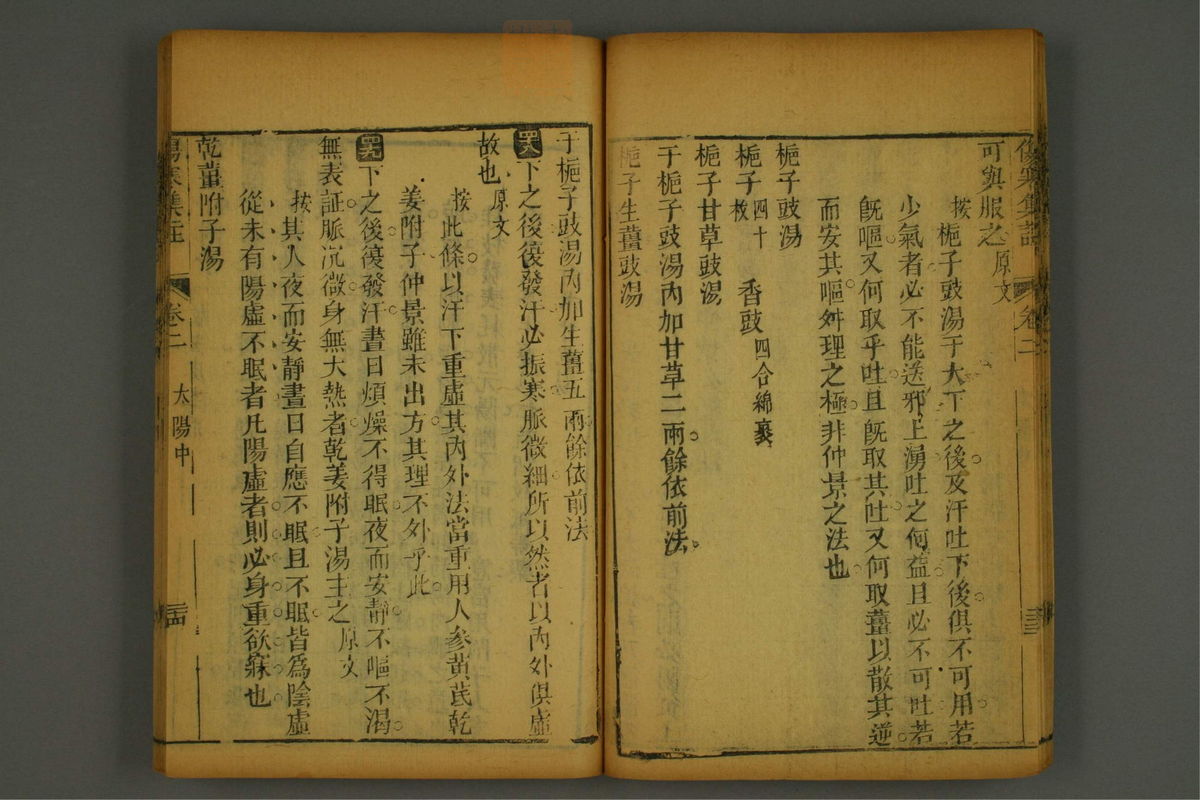 傷寒集註 卷二 三三
可與服之 原文
按梔子豉湯于大下之後及汗吐下後俱不可用若
少氣者必不能送邪上湧吐之何益且必不可吐若
既嘔又何取乎吐且既取其吐又何取薑以散其逆
而安其嘔舛理之極非仲景之法也
梔子豉湯
梔子 四十枚 香豉 四合綿裹
梔子甘草豉湯
于梔子豉湯內加甘草二兩餘依前法
梔子生薑豉湯
于梔子豉湯內加生薑五兩餘依前法
四八 下之後復發汗必振寒脈微細所以然者以內外俱虛
故也 原文
按此條以汗下重虛其內外法當重用人參黃芪乾
姜附子仲景雖未出方其理不外乎此
四九 下之後復發汗晝日煩燥不得眠夜而安靜不嘔不渴
無表証脈沉微身無大熱者乾姜附子湯主之 原文
按其人夜而安靜晝日自應不眠且不眠皆為陰虛
從未有陽虛不眠者凡陽虛者則必身重欲寐也
乾薑附子湯
傷寒集註 卷二 太陽中 三四